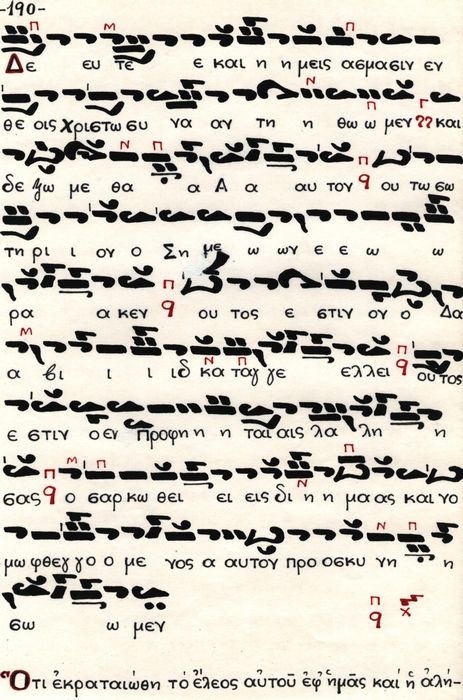 -190-
Δε ευ τε ε και η η μεις ασμασιν εν
θε οις χριστω συ να αν τη η θω ω μεν και
δε ζω με θα α Α α αυ τον ου τω σω
τη ρι ι ον ο Ση με ω ων ε ε ω ω
ρα α κεν ου τος ε στιν ον ο Δα
α βι ι ι ιδ κα ταγ γε ελλει ου τος
ε στιν ον προφη η η ται αις λα λη η
σας ο σαρ κω θει ει εις δι η η μα ας και γο
μω φθεγγο ο με νος α αυτον προ σκυ νη η
σω ω μεν
Ὅτι ἐκραταιώθη τό ἔλεος αὐτοῦ ἐφ' ἡμᾶς καί ἡ αλή-